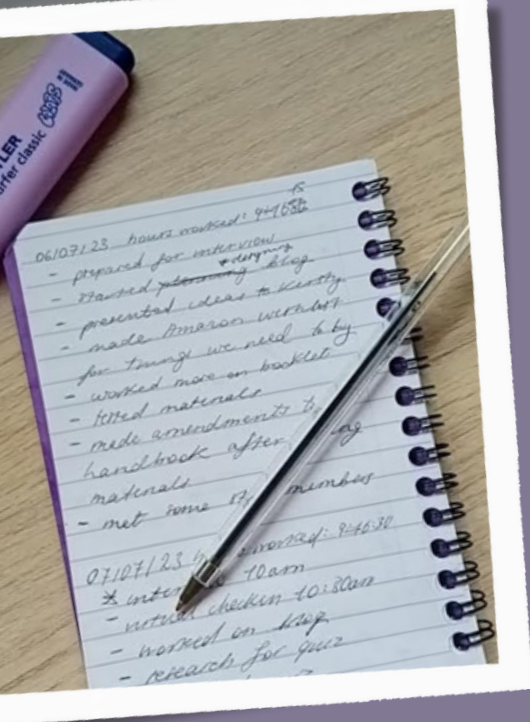 LER
rfer classic
06/07/23 hours worked: 9-
- prepared for interview
- started planning * designing blog
- presented ideas to Kirsty
- made Amazon wishlist
for things we need to buy
- worked more on booklet
- materials
- made amendments to
handbook after
materials
- met some members
07/07/23 worked: 9-
* 10am
- virtual checkin 10:30am
- worked on blog
- research for quiz